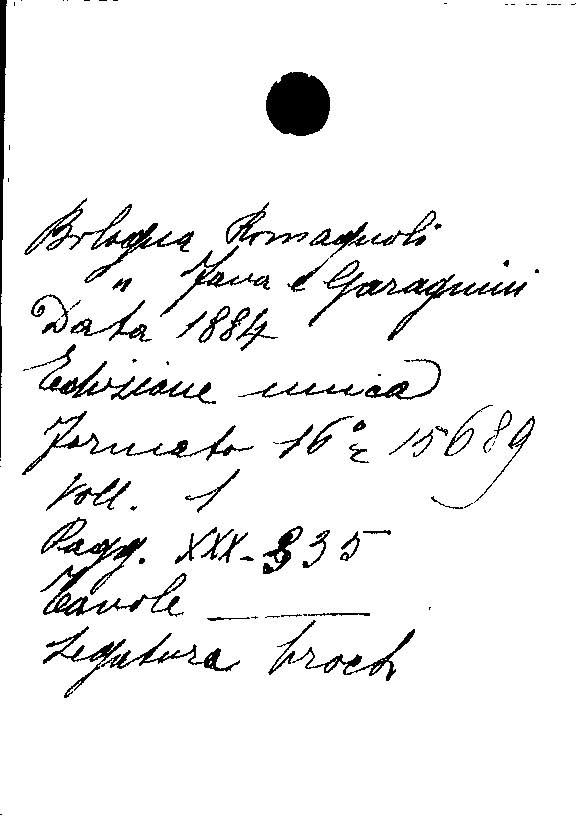 Bologna Romagnoli
" Fava e Garagnini
Data 1884
Edizione unica
Formato 16° 15689
Voll. 1
Pagg. XXX-335
Tavole
Legatura broch